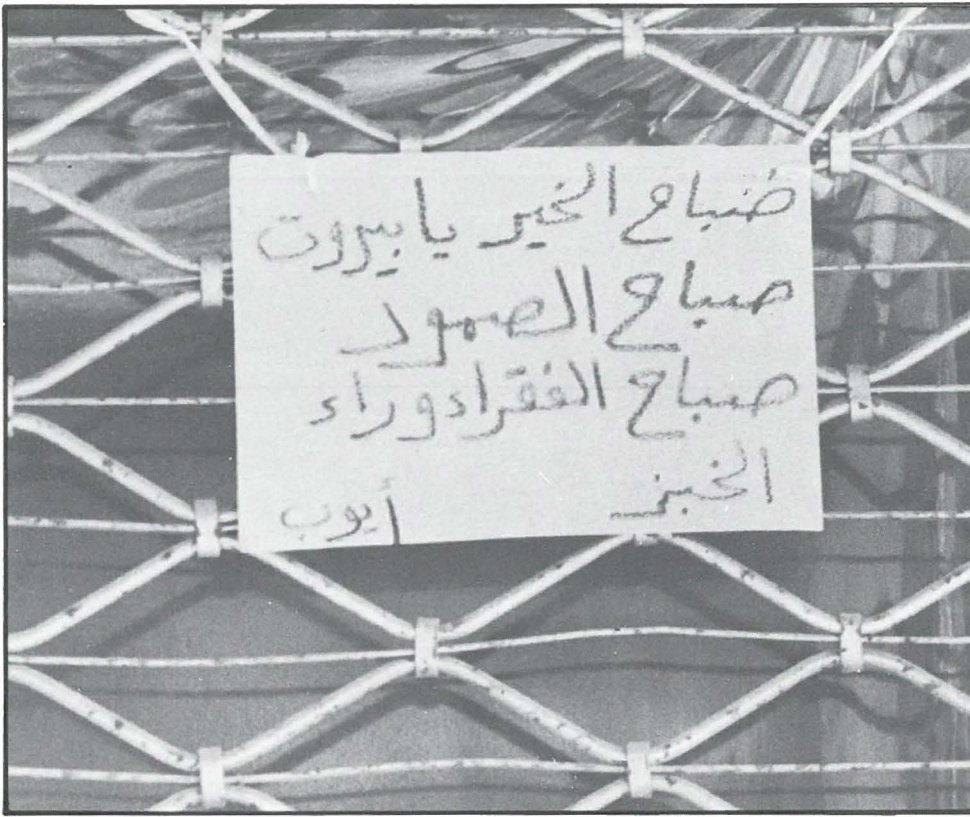 صباح الخير يا بيروت
صباح الصمود
صباح الفقراء وراء
الخبز
أيوب